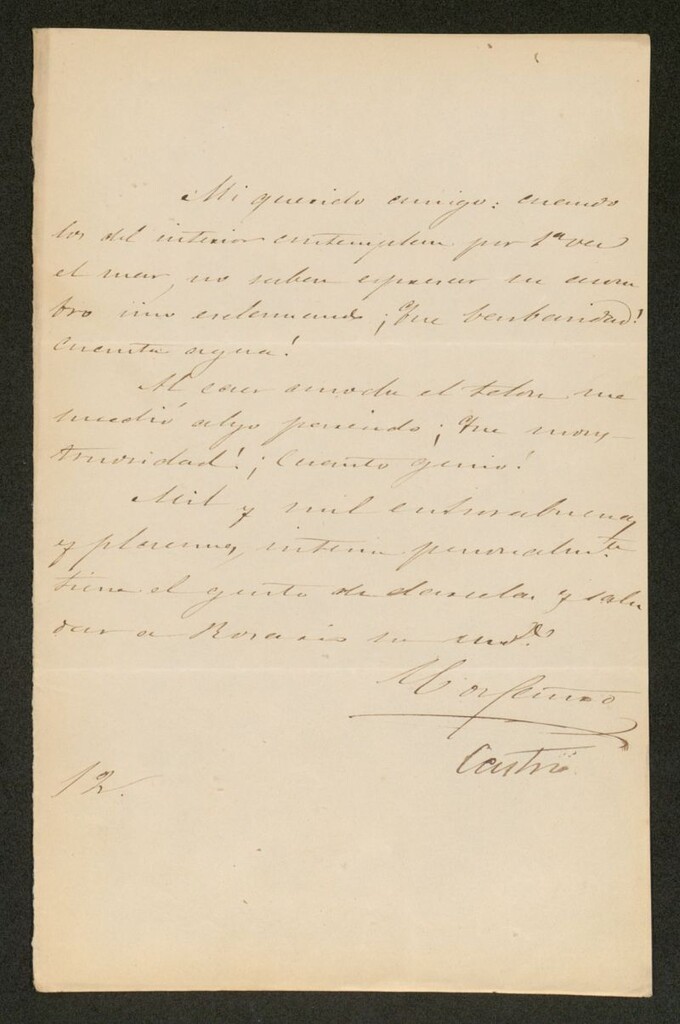 Mi querido amigo: cuando
los del interior contemplan por 1ª vez
el mar, no saben espresar su asom
bro sino esclamando ¡Que barbaridad!
cuanta agua!
Al caer anoche el telon me
sucedió algo parecido; ¡Que mons-
truosidad! ¡Cuanto genio!
Mil y mil enhorabuenas
y placemes, interin personalmte
tiene el gusto de darselas y salu
dar a Rosario su
Castro
12.